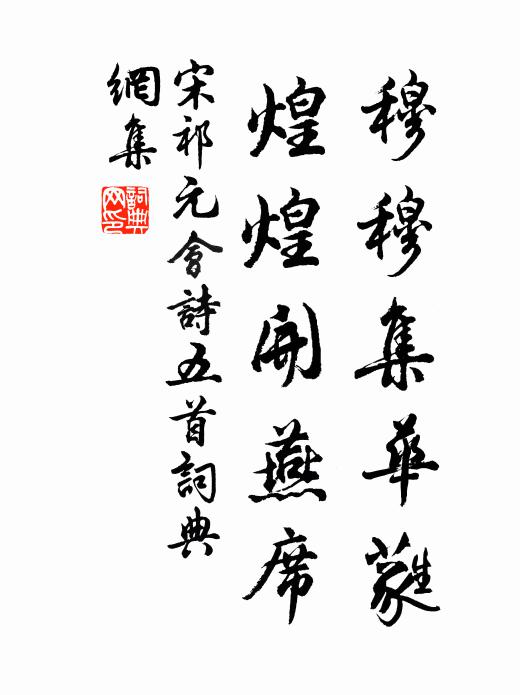 穆穆集華蕤
煌煌開燕席
宋祁元會詩五首詞典
網集
詞典網印